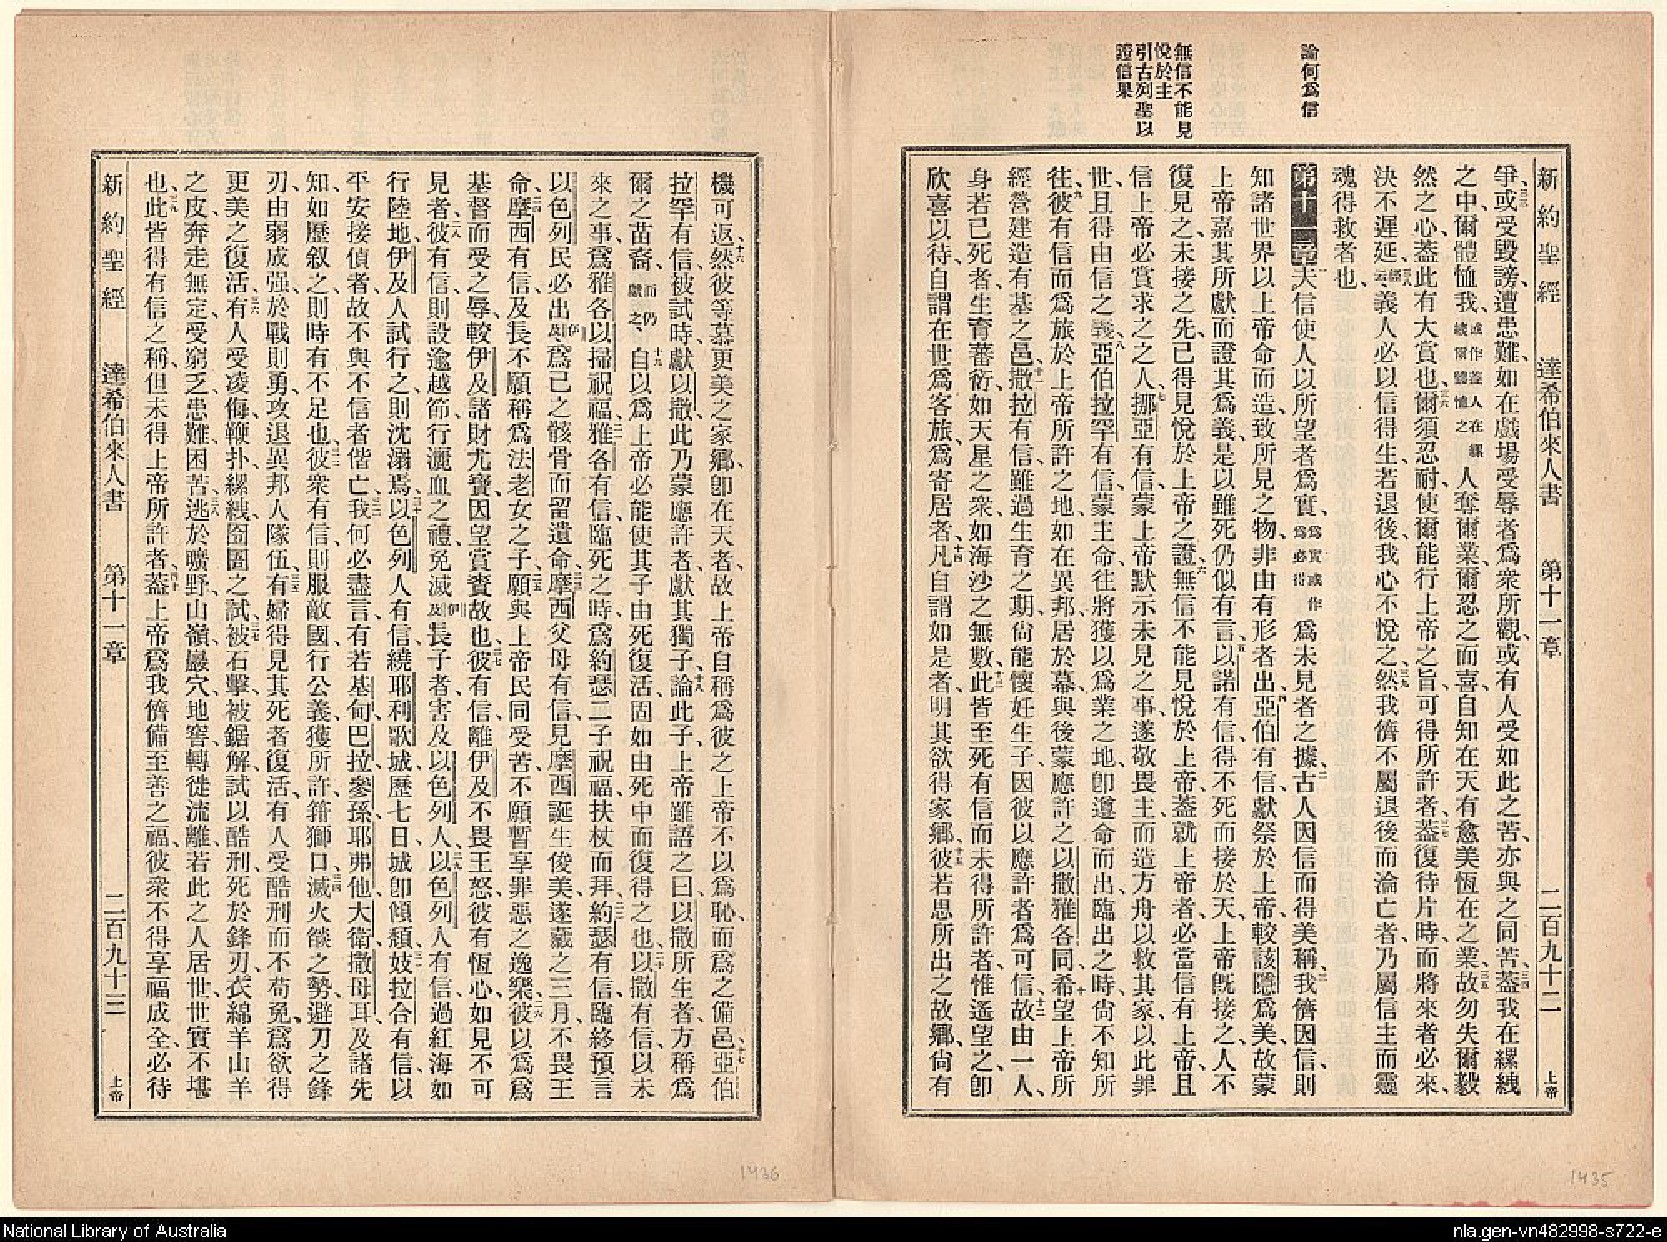 論何爲信
無信不能見
悅於主
引古列聖以
證信果
新約聖經 達希伯來人書 第十一章 二百九十二 上帝
爭、或受毀謗、遭患難、如在戲場受辱者、爲衆所觀、或有人受如此之苦、亦與之同苦、蓋我在縲絏
之中、爾體恤我、或作蓋人在縲絏爾體恤之人奪爾業、爾忍之而喜、自知在天有愈美恆在之業、故勿失爾毅
然之心、蓋此有大賞也、爾須忍耐、使爾能行上帝之旨、可得所許者、蓋復待片時、而將來者必來、
決不遲延、經云義人必以信得生、若退後、我心不悅之、然我儕不屬退後而淪亡者、乃屬信主而靈
魂得救者也、
第十一章 夫信使人以所望者爲實、爲實或作爲必得爲未見者之據、古人因信而得美稱、我儕因信、則
知諸世界以上帝命而造、致所見之物、非由有形者出、亞伯有信、獻祭於上帝、較該隱爲美、故蒙
上帝嘉其所獻、而證其爲義、是以雖死仍似有言、以諾有信、得不死而接於天、上帝旣接之、人不
復見之、未接之先、已得見悅於上帝之證、無信不能見悅於上帝、蓋就上帝者、必當信有上帝、且
信上帝必賞求之之人、挪亞有信、蒙上帝默示未見之事、遂敬畏主、而造方舟以救其家、以此罪
世、且得由信之義、亞伯拉罕有信、蒙主命往將獲以爲業之地、卽遵命而出、臨出之時、尙不知所
往、彼有信而爲旅於上帝所許之地、如在異邦、居於幕、與後蒙應許之以撒雅各同、希望上帝所
經營建造有基之邑、撒拉有信、雖過生育之期、尙能懷妊生子、因彼以應許者爲可信、故由一人、
身若已死者、生育蕃衍、如天星之衆、如海沙之無數、此皆至死有信、而未得所許者、惟遙望之、卽
欣喜以待、自謂在世爲客旅、爲寄居者、凡自謂如是者、明其欲得家鄉、彼若思所出之故鄉、尙有
機可返、然彼等慕更美之家鄉、卽在天者、故上帝自稱爲彼之上帝、不以爲恥、而爲之備邑、亞伯
拉罕有信、被試時、獻以撒、此乃蒙應許者、獻其獨子、論此子、上帝雖語之曰、以撒所生者、方稱爲
爾之苗裔、而仍獻之、自以爲上帝必能使其子由死復活、固如由死中而復得之也、以撒有信、以未
來之事、爲雅各以掃祝福、雅各有信、臨死之時、爲約瑟二子祝福、扶杖而拜、約瑟有信、臨終預言
以色列民必出伊及、爲己之骸骨而留遺命、摩西父母有信、見摩西誕生俊美、遂藏之三月、不畏王
命、摩西有信、及長、不願稱爲法老女之子、願與上帝民同受苦、不願暫享罪惡之逸樂、彼以爲爲
基督而受之辱、較伊及諸財尤寶、因望賞賚故也、彼有信、離伊及、不畏王怒、彼有恆心、如見不可
見者、彼有信、則設逾越節、行灑血之禮、免滅伊及長子者、害及以色列人、以色列人有信、過紅海如
行陸地、伊及人試行之、則沈溺焉、以色列人有信、繞耶利歌城、歷七日、城卽傾頹、妓拉合有信、以
平安接偵者、故不與不信者偕亡、我何必盡言、有若基甸、巴拉、參孫、耶弗他、大衛、撒母耳、及諸先
知、如歷叙之、則時有不足也、彼衆有信、則服敵國、行公義、獲所許、箝獅口、滅火燄之勢、避刀之鋒
刃、由弱成强、於戰則勇、攻退異邦人隊伍、有婦得見其死者復活、有人受酷刑而不苟免、爲欲得
更美之復活、有人受凌侮鞭扑縲絏囹圄之試、被石擊、被鋸解、試以酷刑、死於鋒刃、衣綿羊山羊
之皮、奔走無定、受窮乏患難困苦、逃於曠野山嶺巖穴地窖、轉徙流離、若此之人居世、世實不堪
也、此皆得有信之稱、但未得上帝所許者、蓋上帝爲我儕備至善之福、彼衆不得享福成全、必待
新約聖經 達希伯來人書 第十一章 二百九十三 上帝
1436
1435
National Library of Australia
nla.gen-vn482998-s722-e